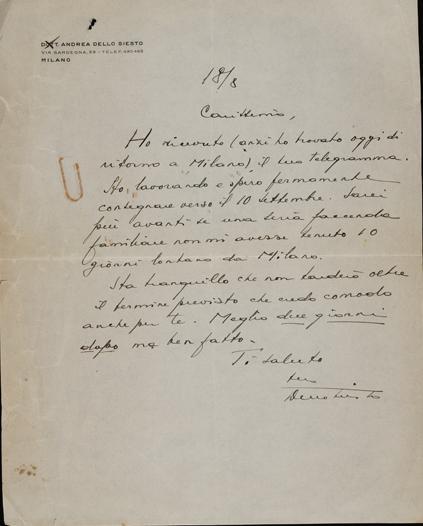 DOTT. ANDREA DELLO SIESTO
VIA SARDEGNA, 28 - TELEF. 490-465
MILANO
18/8
Carissimo,
Ho ricevuto (anzi ho trovato oggi di
ritorno a Milano) il tuo telegramma.
Sto lavorando e spero fermamente
consegnare verso il 10 settembre. Sarei
più avanti se una seria faccenda
familiare non mi avesse tenuto 10
giorni lontano da Milano.
Sta tranquillo che non tarderò oltre
il termine previsto che credo comodo
anche per te. Meglio due giorni
dopo ma ben fatto.
Ti saluto
tuo